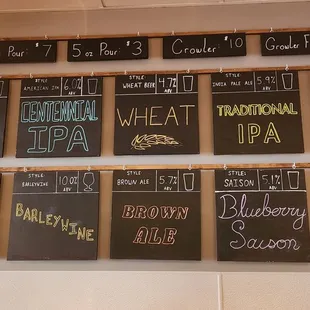 Pour: $7
5 oz Pour: $3
Crowler - $10
Growler
STYLE:
AMERICAN IPA
6.0%
ABV
CENTENNIAL
IPA
STYLE:
WHEAT BEER
4.7%
ABV
WHEAT
STYLE:
INDIA PALE ALE
5.9%
ABV
TRADITIONAL
IPA
STYLE:
BARLEYWINE
10.0%
ABV
BARLEYWINE
STYLE:
BROWN ALE
5.7%
ABV
BROWN
ALE
STYLE:
SAISON
5.1%
ABV
Blueberry
Saison